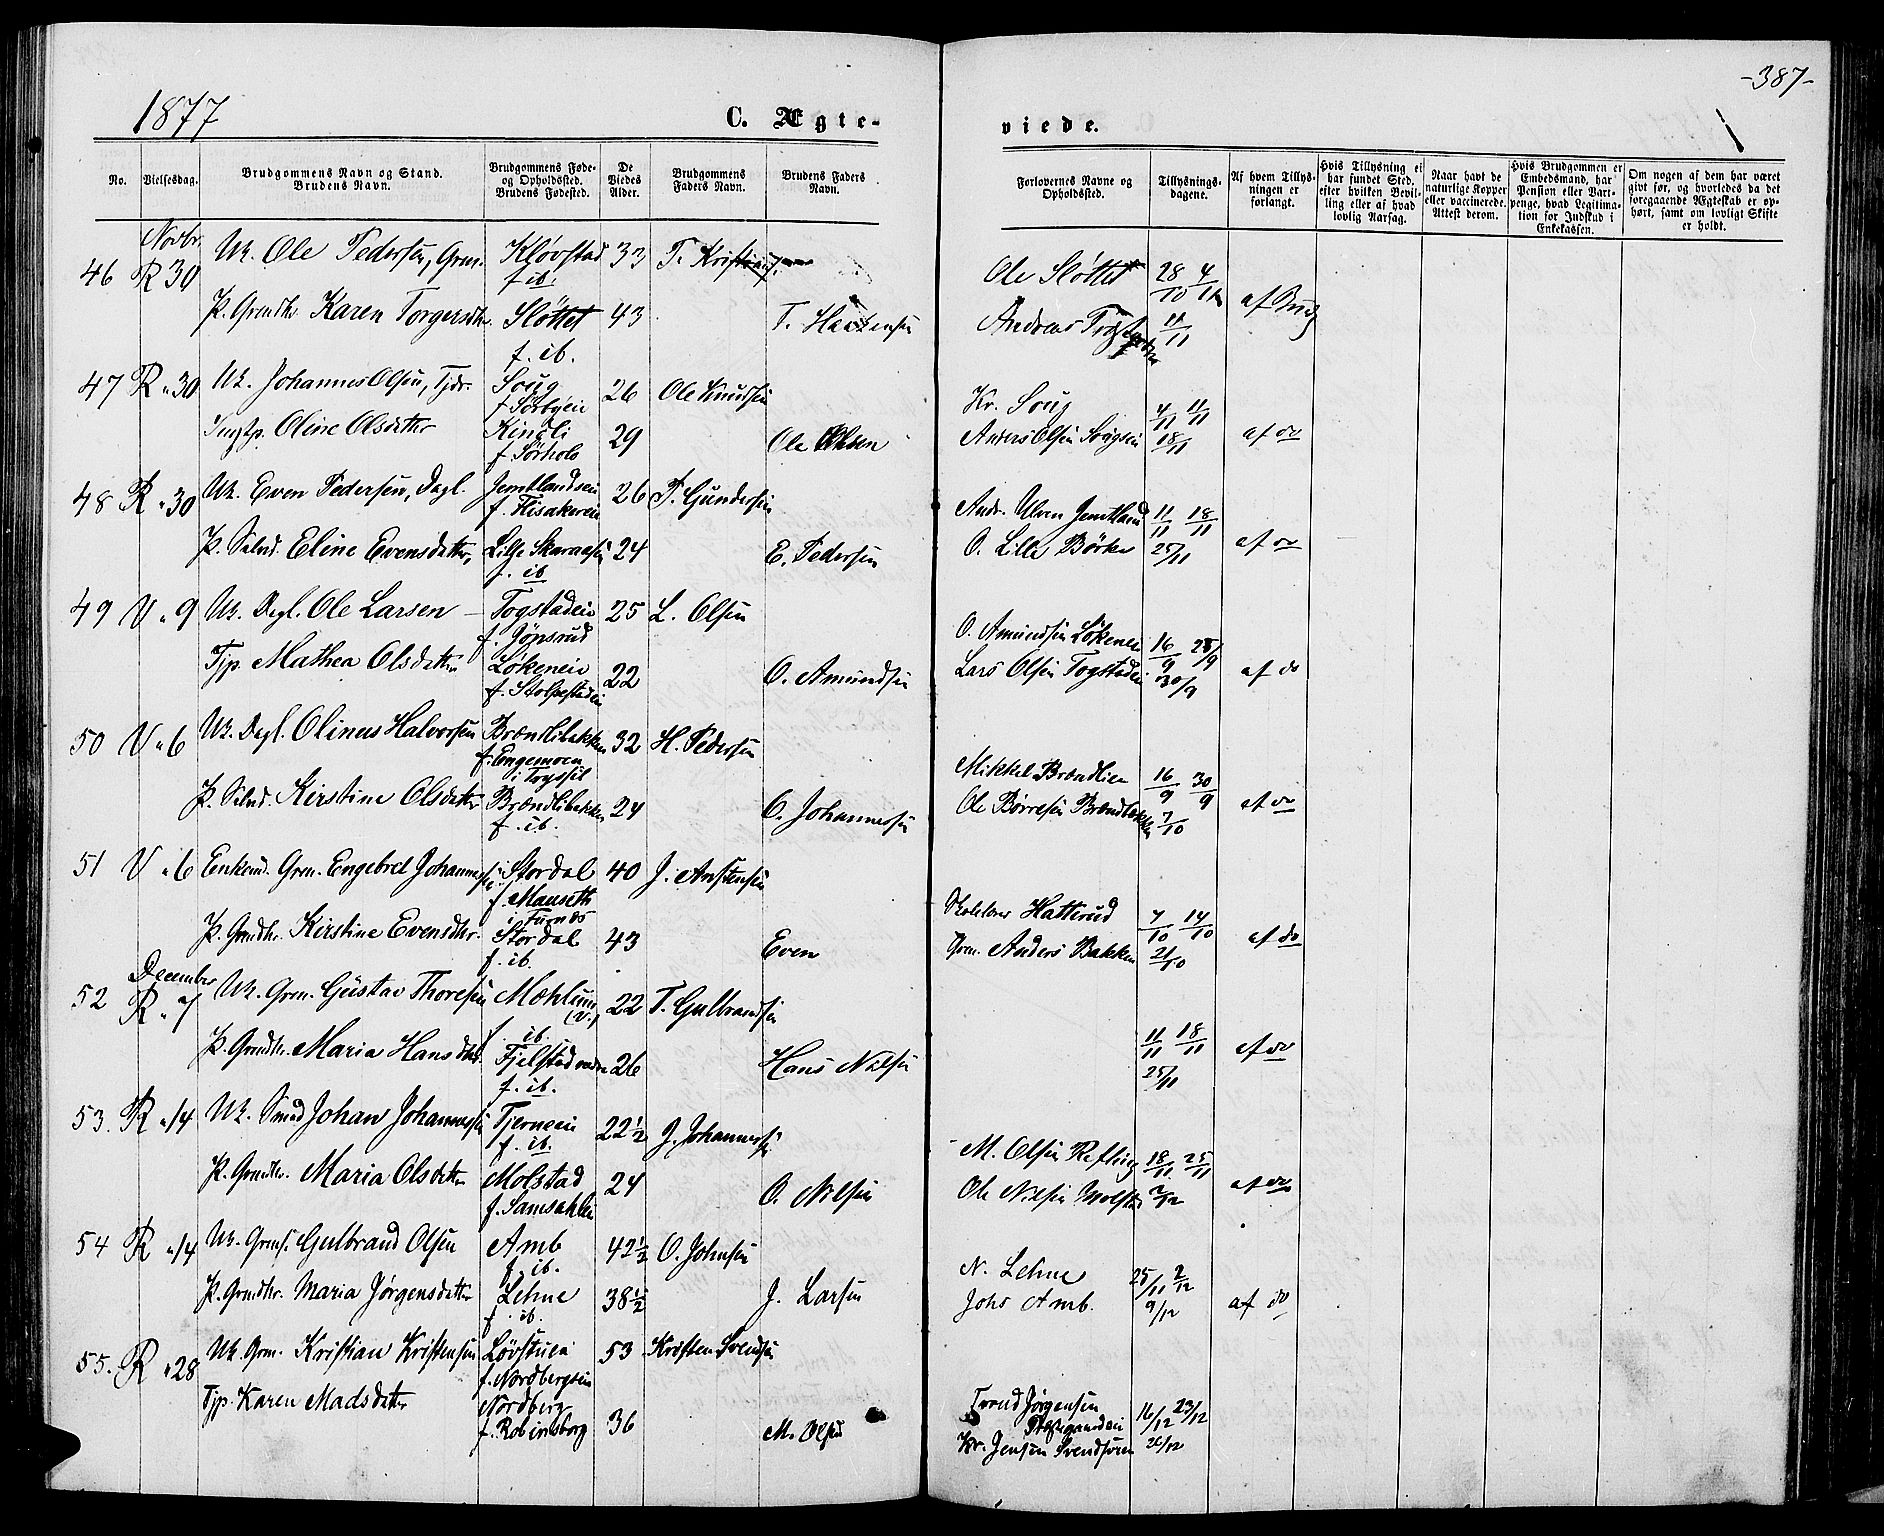 -387-
1877
C. Ægte-
viede.
No.
Vielsesdag.
Brudgommens Navn og Stand.
Brudens Navn.
Brudgommens Føde-
og Opholdssted.
Brudens Fødested.
De
Viedes
Alder.
Brudgommens
Faders Navn.
Brudens Faders
Navn.
Forlovernes Navne og
Opholdssted.
Tillysnings-
dagene.
Af hvem Tillys-
ningen er
forlangt.
Hvis Tillysning ei
har fundet Sted,
efter hvilken Bevil-
ling eller af hvad
lovlig Aarsag.
Naar havt de
naturlige Kopper
eller vaccinerede.
Attest derom.
Hvis Brudgommen er
Embedsmand, har
Pension eller Var-
penge, hvad Legitima-
tion for Indskud i
Enkekassen.
Om nogen af dem har været
givt før, og hvorledes da det
foregaaende Ægteskab er op-
hørt, samt om lovligt Skifte
er holdt.
Novbr.
46 R 30 Uk. Ole Pedersen, Grm. Kløvstad 33 Ole Sløttet 28/10 4/11
f. ib.
P. Grmdtr. Karen Torgersdtr. Sløttet 43 Andreas 11/11
f. ib.
47 R " 30 Uk. Johannes Olsen, Tjdr. Soug 26 Ole Knudsen Kr. Soug 4/11 11/11
f. Sørbyeie
Oline Olsdatter Kindli 29 Ole Olsen Anders Olsen Sougeie 18/11 af do
f. Sørholo
48 R " 30 Uk. Even Pedersen, Dagl. Jemtlandseie 26 P. Gundersen Andr. Ulven Jemtland 11/11 18/11
f. Flisakereie
P. Eline Evensdatter, Lille Skaraasen 24 E. Pedersen O. Lille Børke 25/11 af do
f. ib.
49 V " 9 Uk. Dagl. Ole Larsen Togstadeie 25 L. Olsen O. Amundsen Løkeneie 16/9
f. Jønsrud
Tjp. Mathea Olsdatter Løkeneie 22 O. Amundsen Lars Olsen Togstadeie 30/9 af do
f. Stolpestadeie
50 V " 6 Uk. Dagl. Olinus Halvorsen Brændlibakken 32 H. Pedersen Mikkel Brændlien 16/9 30/9
f. Engemoen
i Trysil
P. Kirstine Olsdatter Brændlibakken 24 O. Johannessen Ole Børresen 7/10 af do
f. ib.
51 V " 6 Enkemd. Grm. Engebret Johannessen Stordal 40 J. Anstensen Hatterud 7/10 14/10
f. Mauseth
i Furnes
P. Grmdtr. Kirstine Evensdtr. Stordal 43 Even Grm. Anders Bakken 21/10 af do
f. ib.
December
52 R " 7 Uk. Grm. Gustav Thoresen Mæhlum (V.) 22 T. Gulbrandsen 11/11 18/11 af do
f. ib.
P. Grmdtr. Maria Hansdtr. Fjelstad nedre 26 Hans Nilsen 25/11
f. ib.
53. R " 14 Uk. Smed Johan Johannessen Tjerneeie 22½ J. Johannessen M. Olsen Refling 18/11 25/11
f. ib.
P. Grmdtr. Maria Olsdatter Molstad 24 O. Nilsen Ole Nilsen Molstad 2/12 af do
f. Samsahleie
54 R " 14 Uk. Grmf. Gulbrand Olsen Amb 42½ O. Johnsen N. Lehne 25/11 2/12
f. ib.
P. Grmdtr. Maria Jørgensdatter Lehne 38½ J. Larsen Johs Amb. 9/12 af do
f. ib.
55. R " 28 Uk. Grm. Kristian Kristensen Løvstuen 53 Kristen Svendsen Trond Jørgensen 16/12 23/12
f. Nordbergeie
Tjp. Karen Madsdatter Nordberg 36 M. Olsen Kr. Jensen 26/12
f. Robinsborg